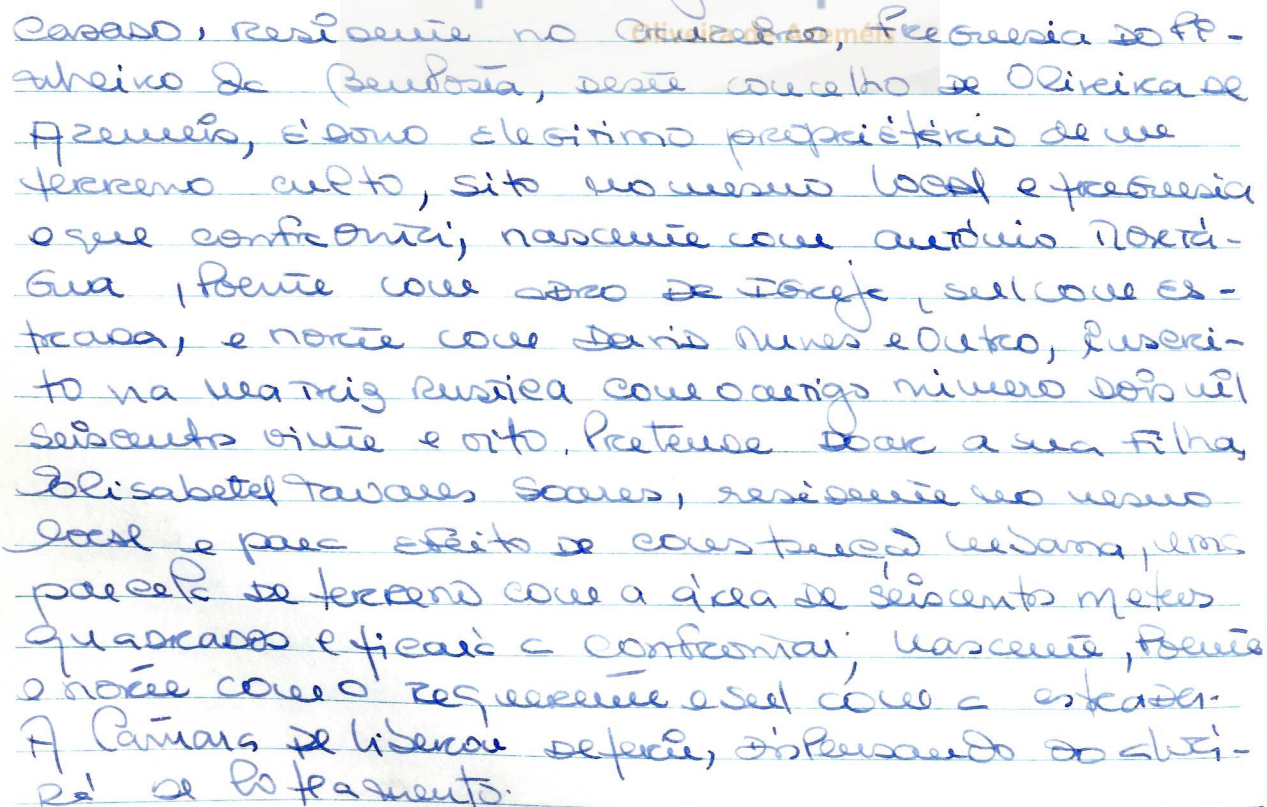 casado, residente no Cruzeiro, freguesia do Pi-
nheiro da Bemposta, deste concelho de Oliveira de
Azeméis, é dono e legitimo propriétério de um
terreno culto, sito no mesmo local e freguesia
e que confronta; nascente com António Mortá-
gua, Poente com adro da Igreja, sul com es-
trada, e norte com Dario Nunes e Outro, inscri-
to na matriz rustica com o artigo número dois mil
seiscentos vinte e oito. Pretende doar a sua filha,
Elisabetel Tavares Soares, residente no mesmo
local e para efeito de construção urbana, uma
parcela de terreno com a área de seiscentos metros
quadrados e ficará a confrontar; nascente, Poente
e norte com o requerente e sul com a estrada.
A Câmara deliberou deferir, dispensando do alva-
rá de loteamento.